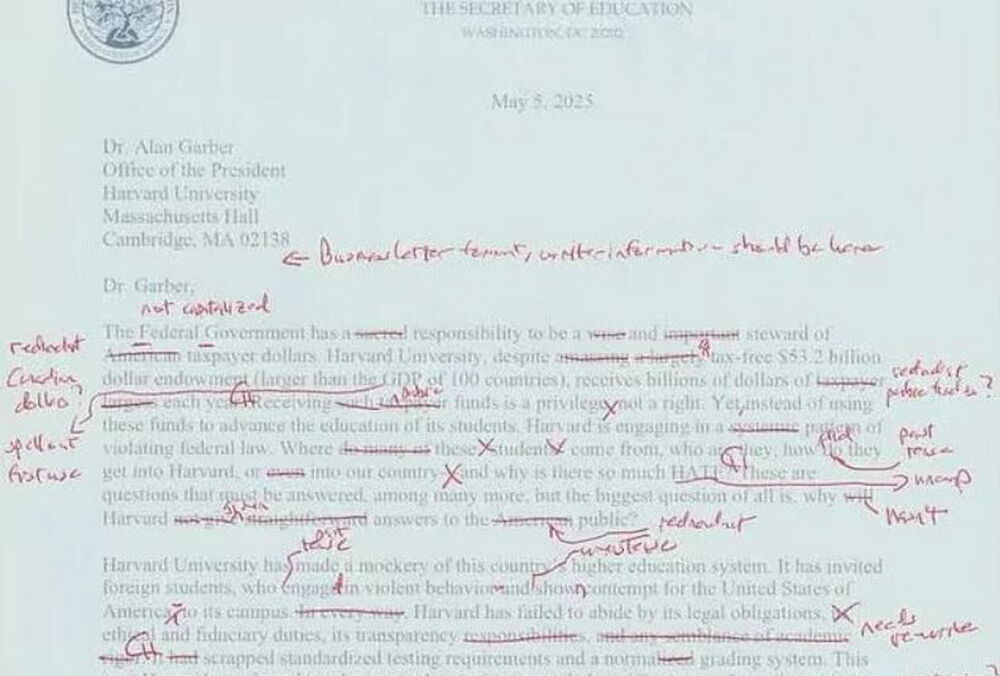 THE SECRETARY OF EDUCATION
WASHINGTON, DC 20202
May 5, 2025
Dr. Alan Garber
Office of the President
Harvard University
Massachusetts Hall
Cambridge, MA 02138
← Business letter format, writer information should be here
Dr. Garber,
not capitalized
The Federal Government has a sacred responsibility to be a wise and important steward of
redundant
American taxpayer dollars. Harvard University, despite amassing a largely tax-free $53.2 billion
dollar endowment (larger than the GDP of 100 countries), receives billions of dollars of taxpayer
redundist
each year. Receiving such taxpayer funds is a privilege, not a right. Yet, instead of using
these funds to advance the education of its students. Harvard is engaging in a systemic pattern of
spell out
first use
violating federal law. Where do many of these students come from, who are they, how do they
past
tense
get into Harvard, or even into our country and why is there so much HATE? These are
questions that must be answered, among many more, but the biggest question of all is, why will
hasn't
Harvard not give straightforward answers to the American public?
redundant
tense
Harvard University has made a mockery of this country's higher education system. It has invited
foreign students, who engage in violent behavior and show contempt for the United States of
America, to its campus. In every way, Harvard has failed to abide by its legal obligations,
needs
rewrite
ethical and fiduciary duties, its transparency responsibilities, and any semblance of academic
rigor. It had scrapped standardized testing requirements and a normalized grading system. This